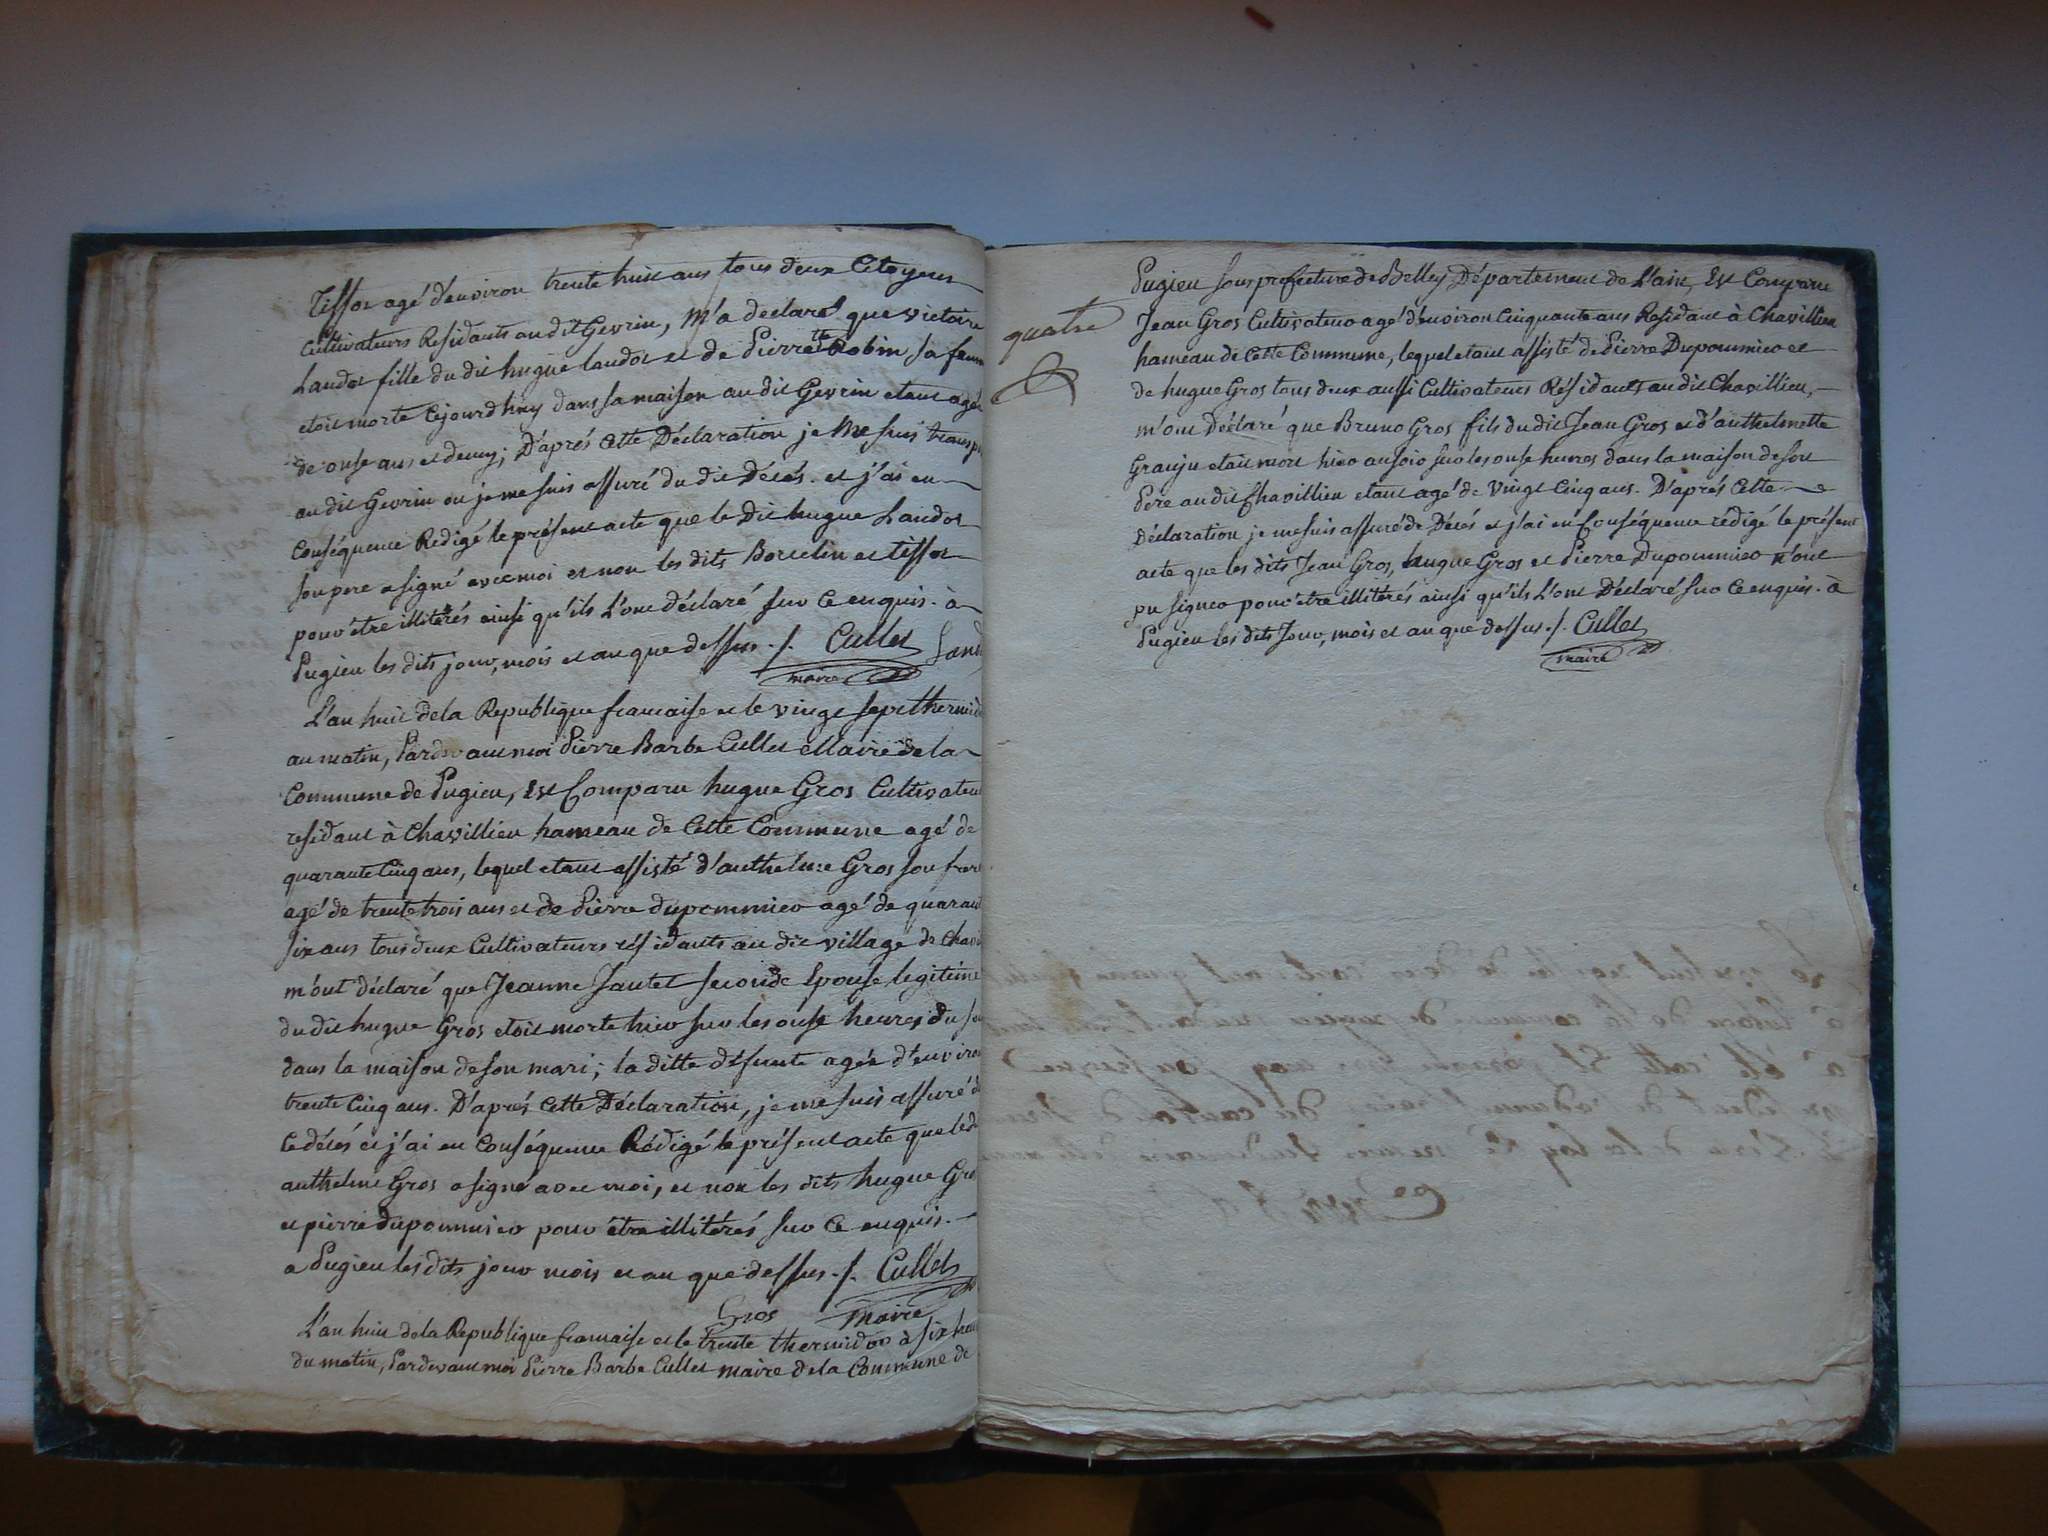 Tissot agé d'environ trente huit ans tous deux Citoyens
Cultivateurs Residants au dit Gevrin, m'a declaré que victoire
Landot fille du dit hugue landot et de Pierrette Robin sa femme
etoit morte cejourdhuy dans sa maison au dit Gevrin etant agée
de onse ans et demy; D'aprés cette Déclaration je me suis transp
au dit Gevrin ou je me suis assuré du dit Décés. et j'ai en
Conséquence Redigé le présent acte que le Dit hugue Landot
son pere a signé avec moi et non les dits Borcelin et tissot
pour être illitérés ainsi qu'ils L'ont déclaré sur ce enquis. à
Pugieu les dits jour, mois et an que dessus ./. Cullet Land
maire
L'an huit de la Republique francaise et le vingt sept thermid
au matin, Pardevant moi Pierre Barbe Cullet Maire de la
Commune de Pugieu, Est Comparu hugue Gros Cultivateur
residant à Chavillieu hameau de Cette Commune agé de
quarante Cinq ans, lequel etant assisté d'anthelme Gros son frere
agé de trente trois ans et de Pierre dupommier agé de quarant
six ans tous deux Cultivateurs résidants au dit village de Chavi
m'ont déclaré que Jeanne Jantet seconde Epouse legitime
du dit hugue Gros etoit morte hier sur les onse heures du soi
dans la maison de son mari; la ditte défunte agée d'environ
trente Cinq ans. D'aprés Cette Déclaration, je me suis assuré d
ce décés et j'ai en Conséquence Rédigé le présent acte que led
anthelme Gros a signé avec moi, et non les dits hugue Gro
et pierre dupommier pour être illitérés sur ce enquis.
a Pugieu les dits jour mois et an que dessus ./. Cullet
Gros maire
L'an huit de la Republique francaise et le trente thermidor à six heu
du matin, Pardevant moi Pierre Barbe Cullet maire de la Commune de
Pugieu sousprefecture de Belley Département de L'ain, Est Comparu
quatre
Jean Gros Cultivateur agé d'environ Cinquante ans Residant à Chavillieu
hameau de Cette Commune, lequel etant assisté de Pierre Dupommier et
de hugue Gros tous deux aussi Cultivateurs Résidants au dit Chavillieu,
m'ont Déclaré que Bruno Gros fils du dit Jean Gros et d'anthelmette
Granju etait mort hier au soir sur les onse heures dans la maison de son
Pere au dit Chavillieu etant agé de Vingt Cinq ans. D'aprés Cette
Déclaration je me suis assuré de Décés et j'ai en Conséquence rédigé le présent
acte que les dits Jean Gros, hugue Gros et Pierre Dupommier n'ont
pu signer pour être illitérés ainsi qu'ils L'ont Déclaré sur Ce enquis. à
Pugieu les dits Jour, mois et an que dessus ./. Cullet
maire